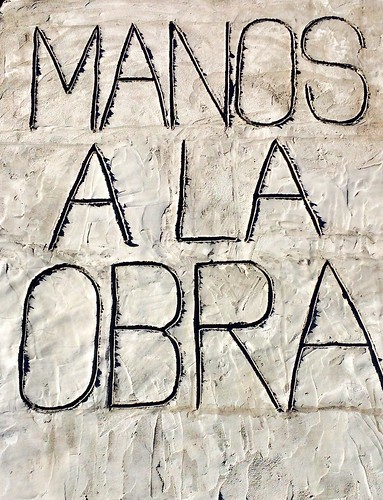 MANOS
A LA
OBRA